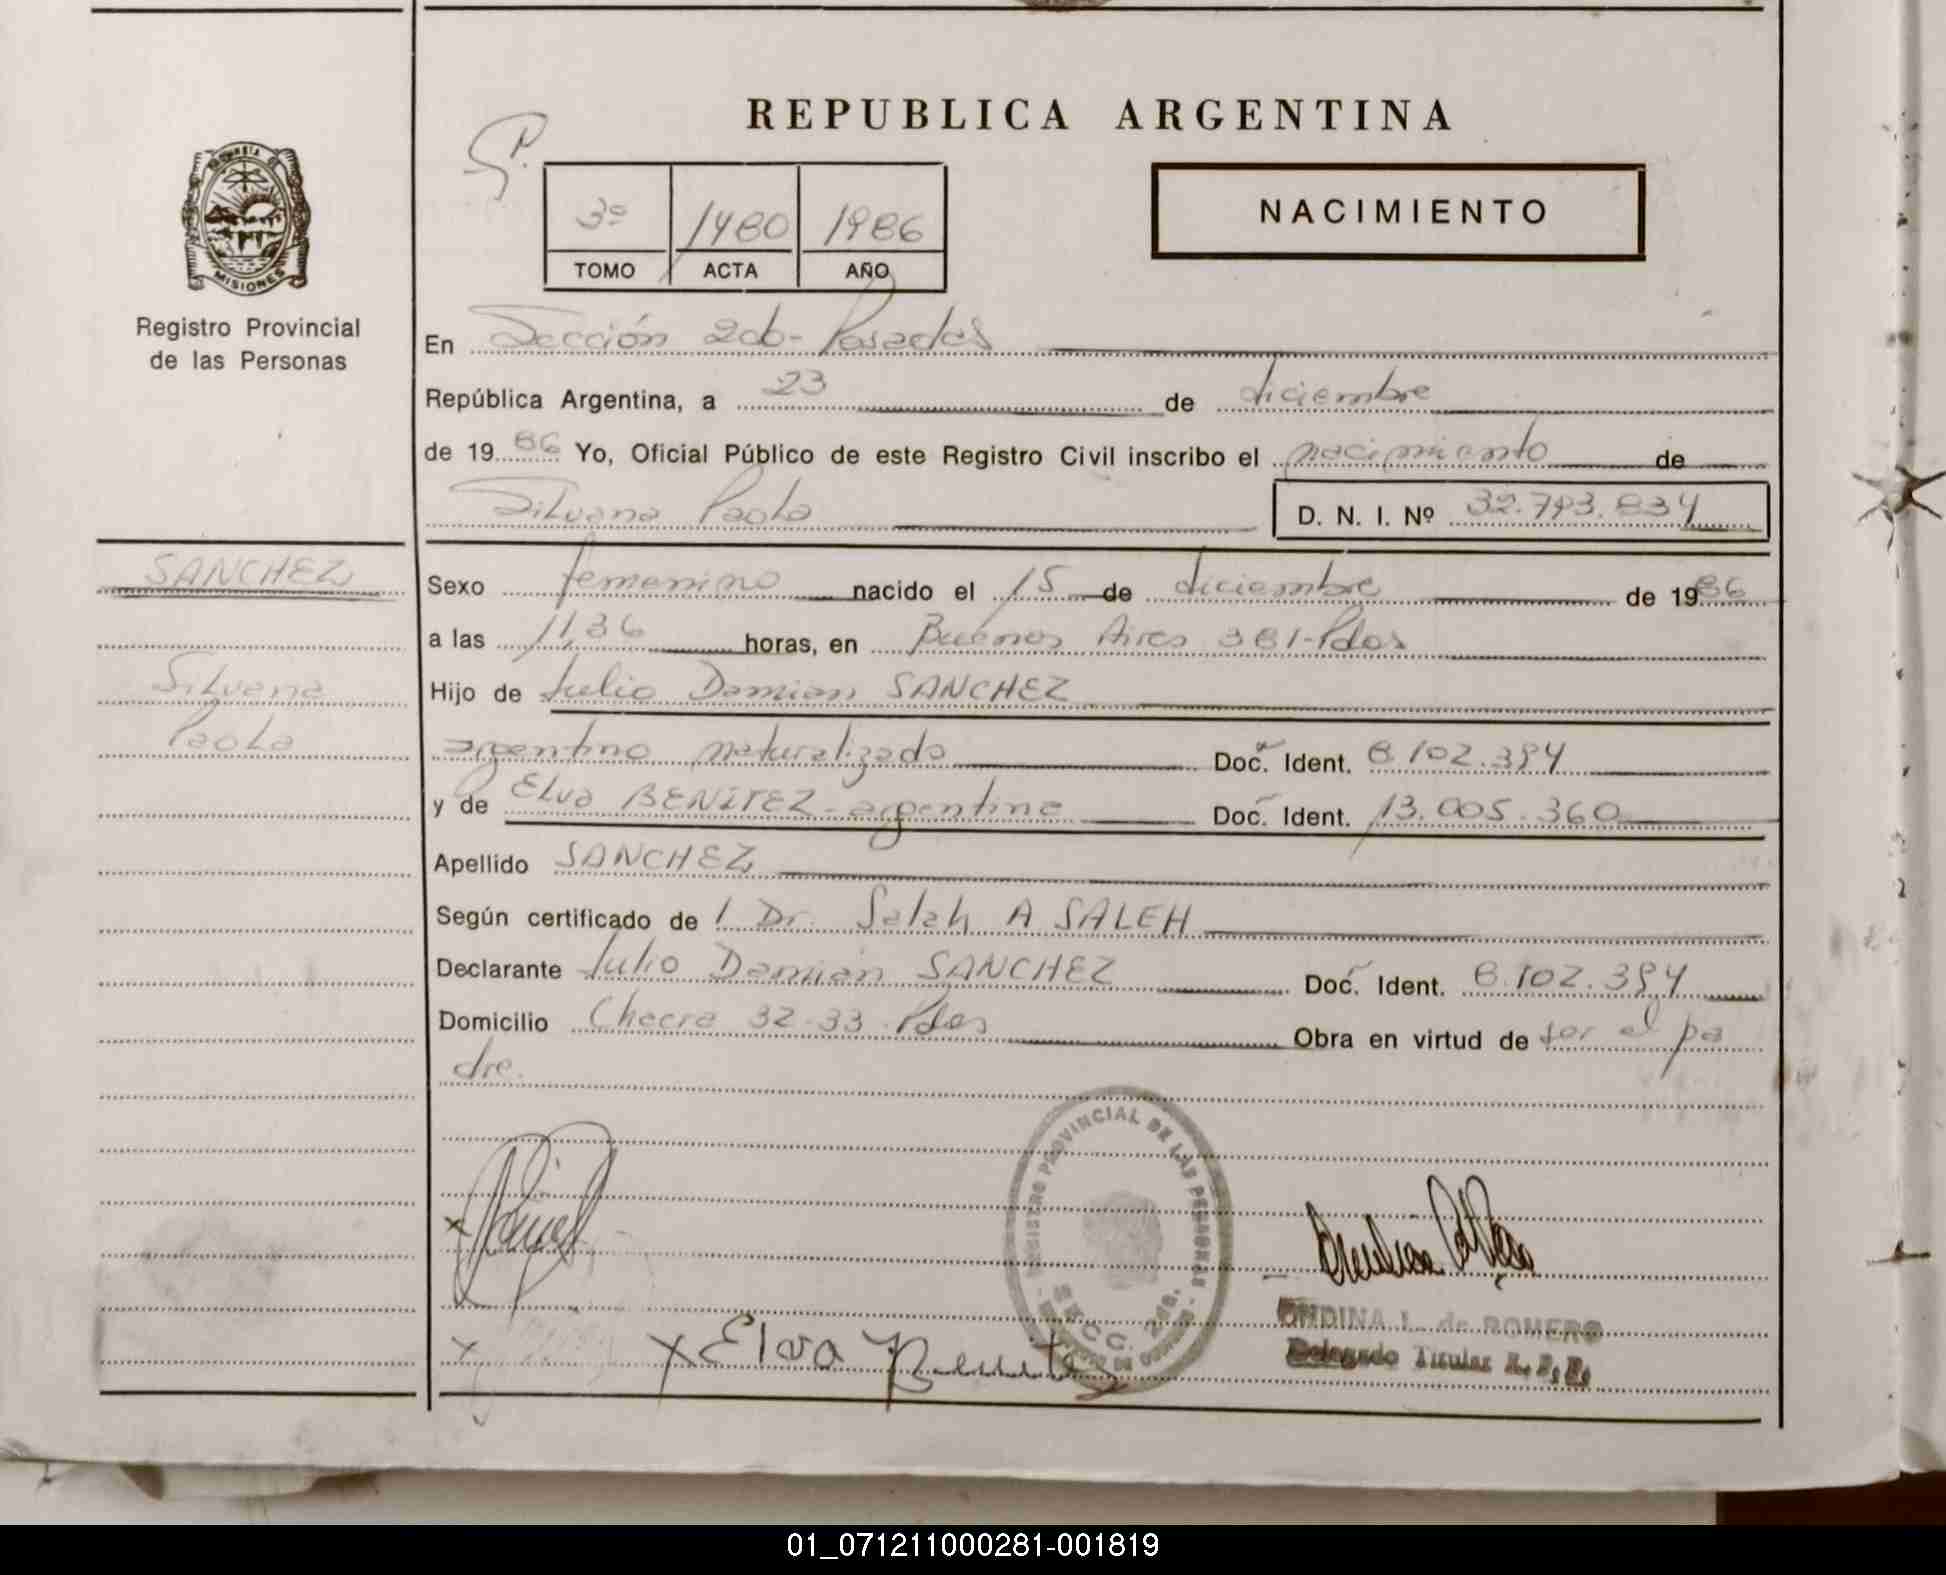 REPUBLICA ARGENTINA
NACIMIENTO
3º 1480 1986
TOMO ACTA AÑO
PROVINCIA DE MISIONES
Registro Provincial
de las Personas
En Sección 2da- Posadas
República Argentina, a 23 de diciembre
de 1986 Yo, Oficial Público de este Registro Civil inscribo el nacimiento de
Silvana Paola D. N. I. Nº 32.793.834
SANCHEZ
Silvana
Paola
Sexo femenino nacido el 15 de diciembre de 1986
a las 11,36 horas, en Buenos Aires 381-Pdas
Hijo de Julio Damian SANCHEZ
argentino naturalizado Doc. Ident. 8.102.394
y de Elva BENITEZ - argentina Doc. Ident. 13.005.360
Apellido SANCHEZ
Según certificado de l Dr. Saleh A SALEH
Declarante Julio Damián SANCHEZ Doc. Ident. 8.102.394
Domicilio Chacra 32-33-Pdas Obra en virtud de ser el pa
dre.
REGISTRO PROVINCIAL DE LAS PERSONAS
SECC. 2da.
x
ONDINA L. de ROMERO
Delegado Titular R. P. P.
x x Elva Benitez
01_071211000281-001819